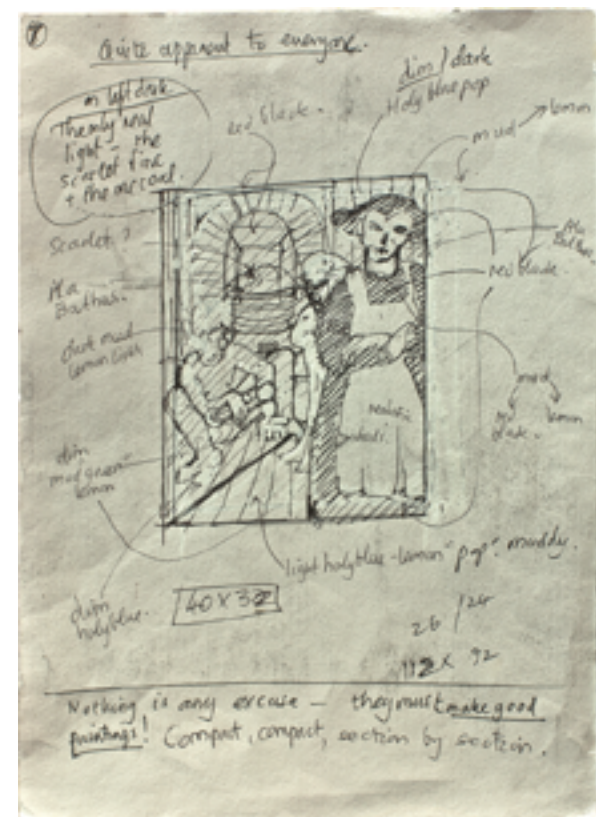 7
Quite apparent to everyone.
on left dark
The only real
light – the
scarlet fire
+ the
red black.
dim / dark
Holy blue pop
mud
lemon
Scarlet ?
Ala
Balthus.
Ala
Balthus.
red black.
dark mud
lemon
mud
red
black.
lemon
realistic
dim
mud green
lemon
light holy blue - lemon "pop". muddy.
dim
holy blue.
40 x 32
26 / 24
112 x 92
Nothing is any excuse – they must make good
paintings! Compact, compact, section by section.